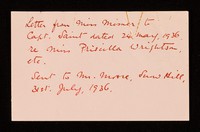 Letter from Miss Misner to
Capt. Saint dated 24 May, 1936
re Miss Priscilla Wrighton,
etc.
Sent to Mr. Moore, Hill,
31st. July, 1936.